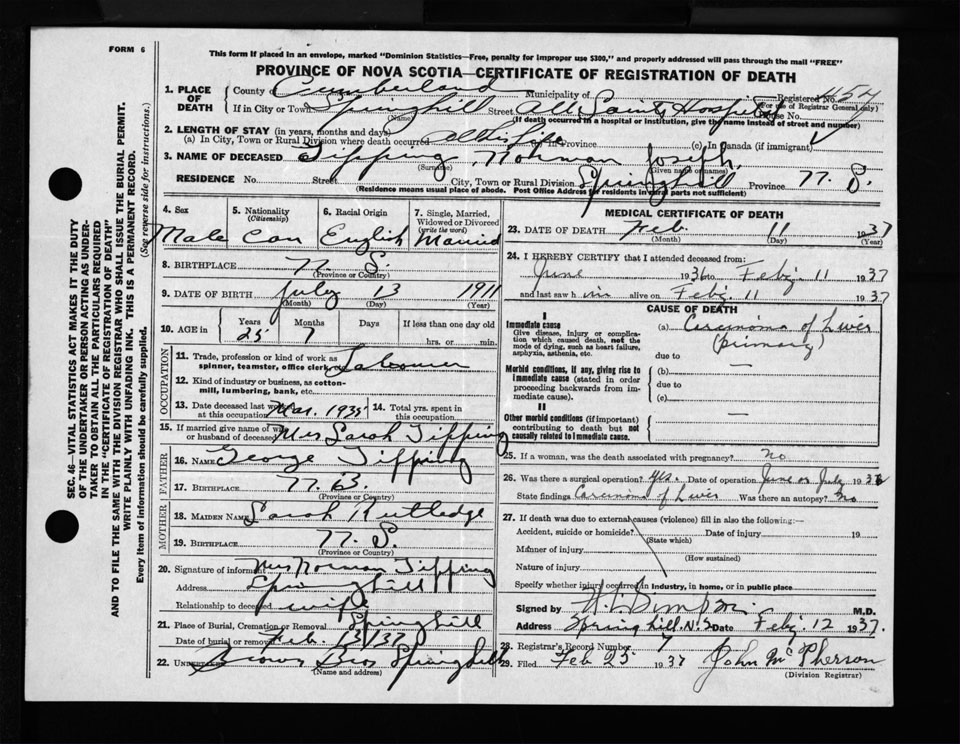 FORM 6
This form if placed in an envelope, marked "Dominion Statistics—Free, penalty for improper use $300," and properly addressed will pass through the mail "FREE"
PROVINCE OF NOVA SCOTIA—CERTIFICATE OF REGISTRATION OF DEATH
SEC. 46—VITAL STATISTICS ACT MAKES IT THE DUTY
OF THE UNDERTAKER OR PERSON ACTING AS UNDER-
TAKER TO OBTAIN ALL THE PARTICULARS REQUIRED
IN THE "CERTIFICATE OF REGISTRATION OF DEATH"
AND TO FILE THE SAME WITH THE DIVISION REGISTRAR WHO SHALL ISSUE THE BURIAL PERMIT.
WRITE PLAINLY WITH UNFADING INK. THIS IS A PERMANENT RECORD.
Every item of information should be carefully supplied. (See reverse side for instructions.)
1. PLACE OF DEATH County of Cumberland Municipality of Registered No. 454
(For use of Registrar General only)
If in City or Town Springhill Street All Saints Hospital House No.
(Name) (If death occurred in a hospital or institution, give the name instead of street and number)
2. LENGTH OF STAY (in years, months and days)
(a) In City, Town or Rural Division where death occurred All his Life (b) In Province (c) In Canada (if immigrant)
3. NAME OF DECEASED Tipping Norman Joseph
(Surname) (Given name or names)
RESIDENCE No. Street City, Town or Rural Division Springhill Province N. S.
(Residence means usual place of abode. Post Office Address for residents in rural parts not sufficient)
4. Sex Male
5. Nationality (Citizenship) Can
6. Racial Origin English
7. Single, Married, Widowed or Divorced (write the word) Married
8. BIRTHPLACE N. S.
(Province or Country)
9. DATE OF BIRTH July 13 1911
(Month) (Day) (Year)
10. AGE in Years Months Days If less than one day
25 7 hrs. or min.
OCCUPATION
11. Trade, profession or kind of work as spinner, teamster, office clerk, Labourer
12. Kind of industry or business, as cotton-mill, lumbering, bank, etc.
13. Date deceased last worked at this occupation Mar. 1935
14. Total yrs. spent in this occupation
15. If married give name of wife or husband of deceased Mrs Sarah Tipping
FATHER
16. NAME George Tipping
17. BIRTHPLACE N. B.
(Province or Country)
MOTHER
18. MAIDEN NAME Sarah Rutledge
19. BIRTHPLACE N. S.
(Province or Country)
20. Signature of informant Mrs Norman Tipping
Address Springhill
Relationship to deceased wife
21. Place of Burial, Cremation or Removal Springhill
Date of burial or removal Feb. 13/37
22. UNDERTAKER Brown Bros Springhill
(Name and address)
MEDICAL CERTIFICATE OF DEATH
23. DATE OF DEATH Feb. 11 1937
(Month) (Day) (Year)
24. I HEREBY CERTIFY that I attended deceased from:
June 1936 to Feby. 11 1937
and last saw him alive on Feby. 11 1937
CAUSE OF DEATH
I
Immediate cause
Give disease, injury or complication which caused death, not the mode of dying, such as heart failure, asphyxia, asthenia, etc.
(a) Carcinoma of Liver
(primary)
due to
Morbid conditions, if any, giving rise to immediate cause (stated in order proceeding backwards from immediate cause).
(b)
due to
(c)
II
Other morbid conditions (if important) contributing to death but not causally related to immediate cause.
25. If a woman, was the death associated with pregnancy? no
26. Was there a surgical operation? yes. Date of operation June or July 1936
State findings Carcinoma of Liver Was there an autopsy? no
27. If death was due to external causes (violence) fill in also the following:—
Accident, suicide or homicide? Date of injury 19
(State which)
Manner of injury
(How sustained)
Nature of injury
Specify whether injury occurred in industry, in home, or in public place
Signed by M.D.
Address Springhill. N.S. Date Feby. 12 1937.
28. Registrar's Record Number 7
29. Filed Feb 25 1937 John McPherson
(Division Registrar)